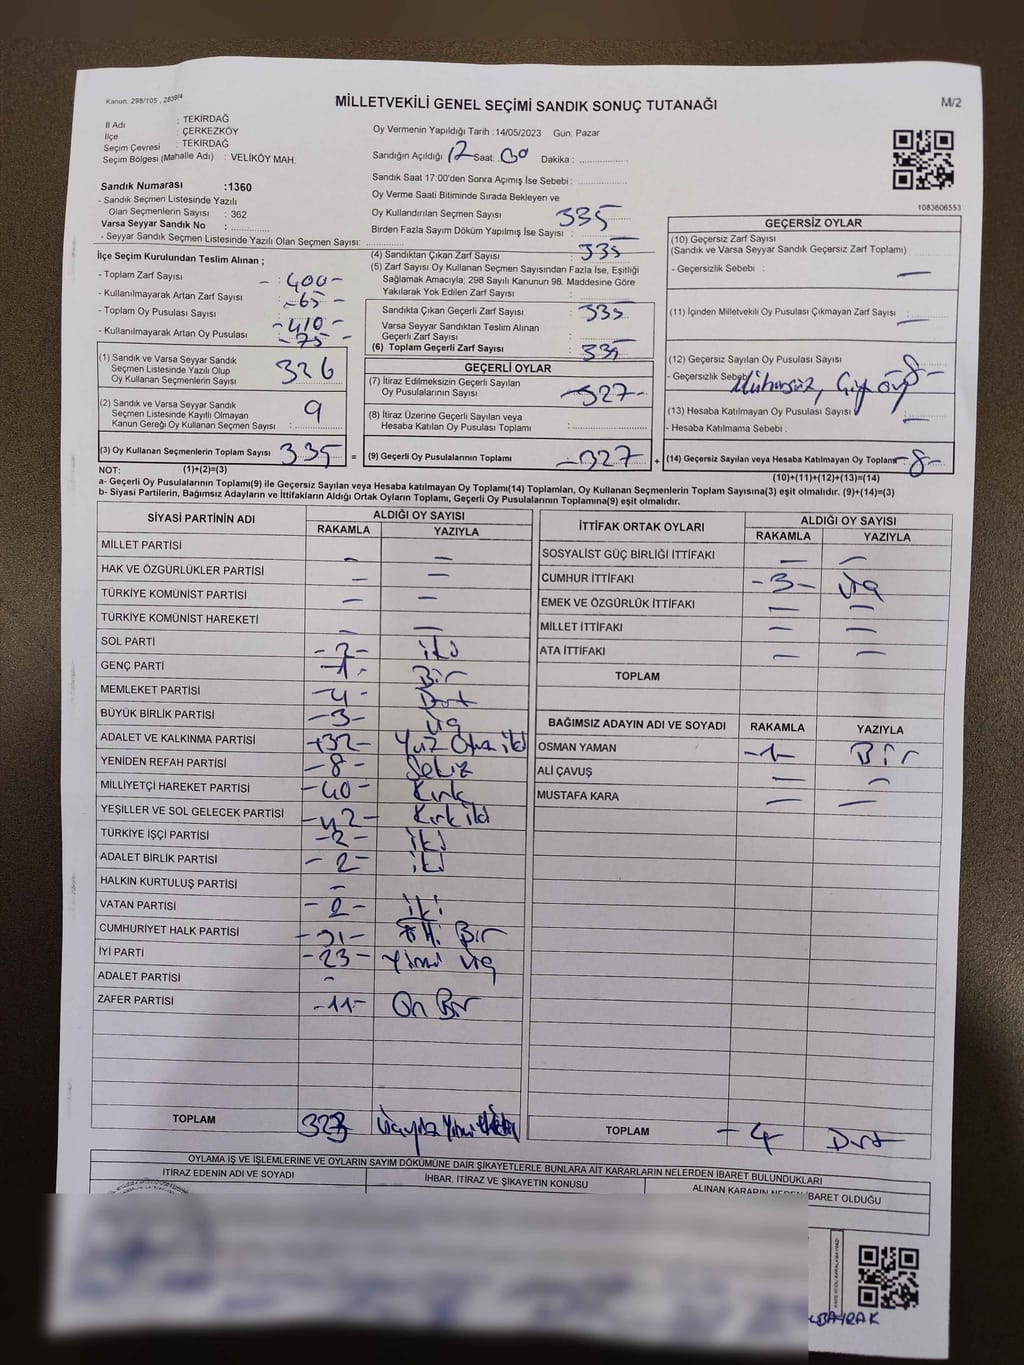 Kanun: 298/105 , 2839/4
MİLLETVEKİLİ GENEL SEÇİMİ SANDIK SONUÇ TUTANAĞI
M/2
İl Adı : TEKİRDAĞ
İlçe : ÇERKEZKÖY
Seçim Çevresi : TEKİRDAĞ
Seçim Bölgesi (Mahalle Adı) : VELİKÖY MAH.
Sandık Numarası :1360
- Sandık Seçmen Listesinde Yazılı
Olan Seçmenlerin Sayısı : 362
Varsa Seyyar Sandık No :
- Seyyar Sandık Seçmen Listesinde Yazılı Olan Seçmen Sayısı:
İlçe Seçim Kurulundan Teslim Alınan ;
- Toplam Zarf Sayısı - 400 -
- Kullanılmayarak Artan Zarf Sayısı -65-
- Toplam Oy Pusulası -410-
- Kullanılmayarak Artan Oy Pusulası -75-
(1) Sandık ve Varsa Seyyar Sandık
Seçmen Listesinde Yazılı Olup
Oy Kullanan Seçmenlerin Sayısı : 326
(2) Sandık ve Varsa Seyyar Sandık
Seçmen Listesinde Kayıtlı Olmayan
Kanun Gereği Oy Kullanan Seçmen Sayısı : 9
(3) Oy Kullanan Seçmenlerin Toplam Sayısı 335 =
Oy Vermenin Yapıldığı Tarih :14/05/2023 Gün: Pazar
Sandığın Açıldığı 12 Saat: 00 Dakika :
Sandık Saat 17:00'den Sonra Açımış İse Sebebi :
Oy Verme Saati Bitiminde Sırada Bekleyen ve
Oy Kullandırılan Seçmen Sayısı 335
Birden Fazla Sayım Döküm Yapılmış İse Sayısı :
(4) Sandıktan Çıkan Zarf Sayısı : 335
(5) Zarf Sayısı Oy Kullanan Seçmen Sayısından Fazla İse, Eşitliği
Sağlamak Amacıyla; 298 Sayılı Kanunun 98. Maddesine Göre
Yakılarak Yok Edilen Zarf Sayısı :
Sandıkta Çıkan Geçerli Zarf Sayısı : 335
Varsa Seyyar Sandıktan Teslim Alınan
Geçerli Zarf Sayısı :
(6) Toplam Geçerli Zarf Sayısı : 335
GEÇERLİ OYLAR
(7) İtiraz Edilmeksizin Geçerli Sayılan
Oy Pusulalarının Sayısı : -327-
(8) İtiraz Üzerine Geçerli Sayılan veya
Hesaba Katılan Oy Pusulası Toplamı :
(9) Geçerli Oy Pusulalarının Toplamı -327 +
1083606553
GEÇERSİZ OYLAR
(10) Geçersiz Zarf Sayısı
(Sandık ve Varsa Seyyar Sandık Geçersiz Zarf Toplamı)
- Geçersizlik Sebebi : —
(11) İçinden Milletvekili Oy Pusulası Çıkmayan Zarf Sayısı —
(12) Geçersiz Sayılan Oy Pusulası Sayısı 8-
- Geçersizlik Sebebi Mühürsüz,
(13) Hesaba Katılmayan Oy Pusulası Sayısı —
- Hesaba Katılmama Sebebi :
(14) Geçersiz Sayılan veya Hesaba Katılmayan Oy Toplamı -8-
NOT: (1)+(2)=(3)
(10)+(11)+(12)+(13)=(14)
a- Geçerli Oy Pusulalarının Toplamı(9) ile Geçersiz Sayılan veya Hesaba katılmayan Oy Toplamı(14) Toplamları, Oy Kullanan Seçmenlerin Toplam Sayısına(3) eşit olmalıdır. (9)+(14)=(3)
b- Siyasi Partilerin, Bağımsız Adayların ve İttifakların Aldığı Ortak Oyların Toplamı, Geçerli Oy Pusulalarının Toplamına(9) eşit olmalıdır.
SİYASİ PARTİNİN ADI ALDIĞI OY SAYISI
RAKAMLA YAZIYLA
MİLLET PARTİSİ — —
HAK VE ÖZGÜRLÜKLER PARTİSİ — —
TÜRKİYE KOMÜNİST PARTİSİ — —
TÜRKİYE KOMÜNİST HAREKETİ — —
SOL PARTİ -2- iki
GENÇ PARTİ -1- Bir
MEMLEKET PARTİSİ -4- Dört
BÜYÜK BİRLİK PARTİSİ -3- üç
ADALET VE KALKINMA PARTİSİ -132- Yüz Otuz iki
YENİDEN REFAH PARTİSİ -8- Sekiz
MİLLİYETÇİ HAREKET PARTİSİ -40- Kırk
YEŞİLLER VE SOL GELECEK PARTİSİ -42- Kırk iki
TÜRKİYE İŞÇİ PARTİSİ -2- iki
ADALET BİRLİK PARTİSİ -2- iki
HALKIN KURTULUŞ PARTİSİ -
VATAN PARTİSİ -2- iki
CUMHURİYET HALK PARTİSİ -51- Elli Bir
İYİ PARTİ -23- Yirmi üç
ADALET PARTİSİ -
ZAFER PARTİSİ -11- On Bir
TOPLAM 323
İTTİFAK ORTAK OYLARI ALDIĞI OY SAYISI
RAKAMLA YAZIYLA
SOSYALİST GÜÇ BİRLİĞİ İTTİFAKI — —
CUMHUR İTTİFAKI -3- üç
EMEK VE ÖZGÜRLÜK İTTİFAKI — —
MİLLET İTTİFAKI — —
ATA İTTİFAKI — —
TOPLAM
BAĞIMSIZ ADAYIN ADI VE SOYADI RAKAMLA YAZIYLA
OSMAN YAMAN -1- Bir
ALİ ÇAVUŞ — —
MUSTAFA KARA — —
TOPLAM -4 Dört
OYLAMA İŞ VE İŞLEMLERİNE VE OYLARIN SAYIM DÖKÜMÜNE DAİR ŞİKAYETLERLE BUNLARA AİT KARARLARIN NELERDEN İBARET BULUNDUKLARI
İTİRAZ EDENİN ADI VE SOYADI İHBAR, İTİRAZ VE ŞİKAYETİN KONUSU ALINAN KARARIN NEDEN İBARET OLDUĞU